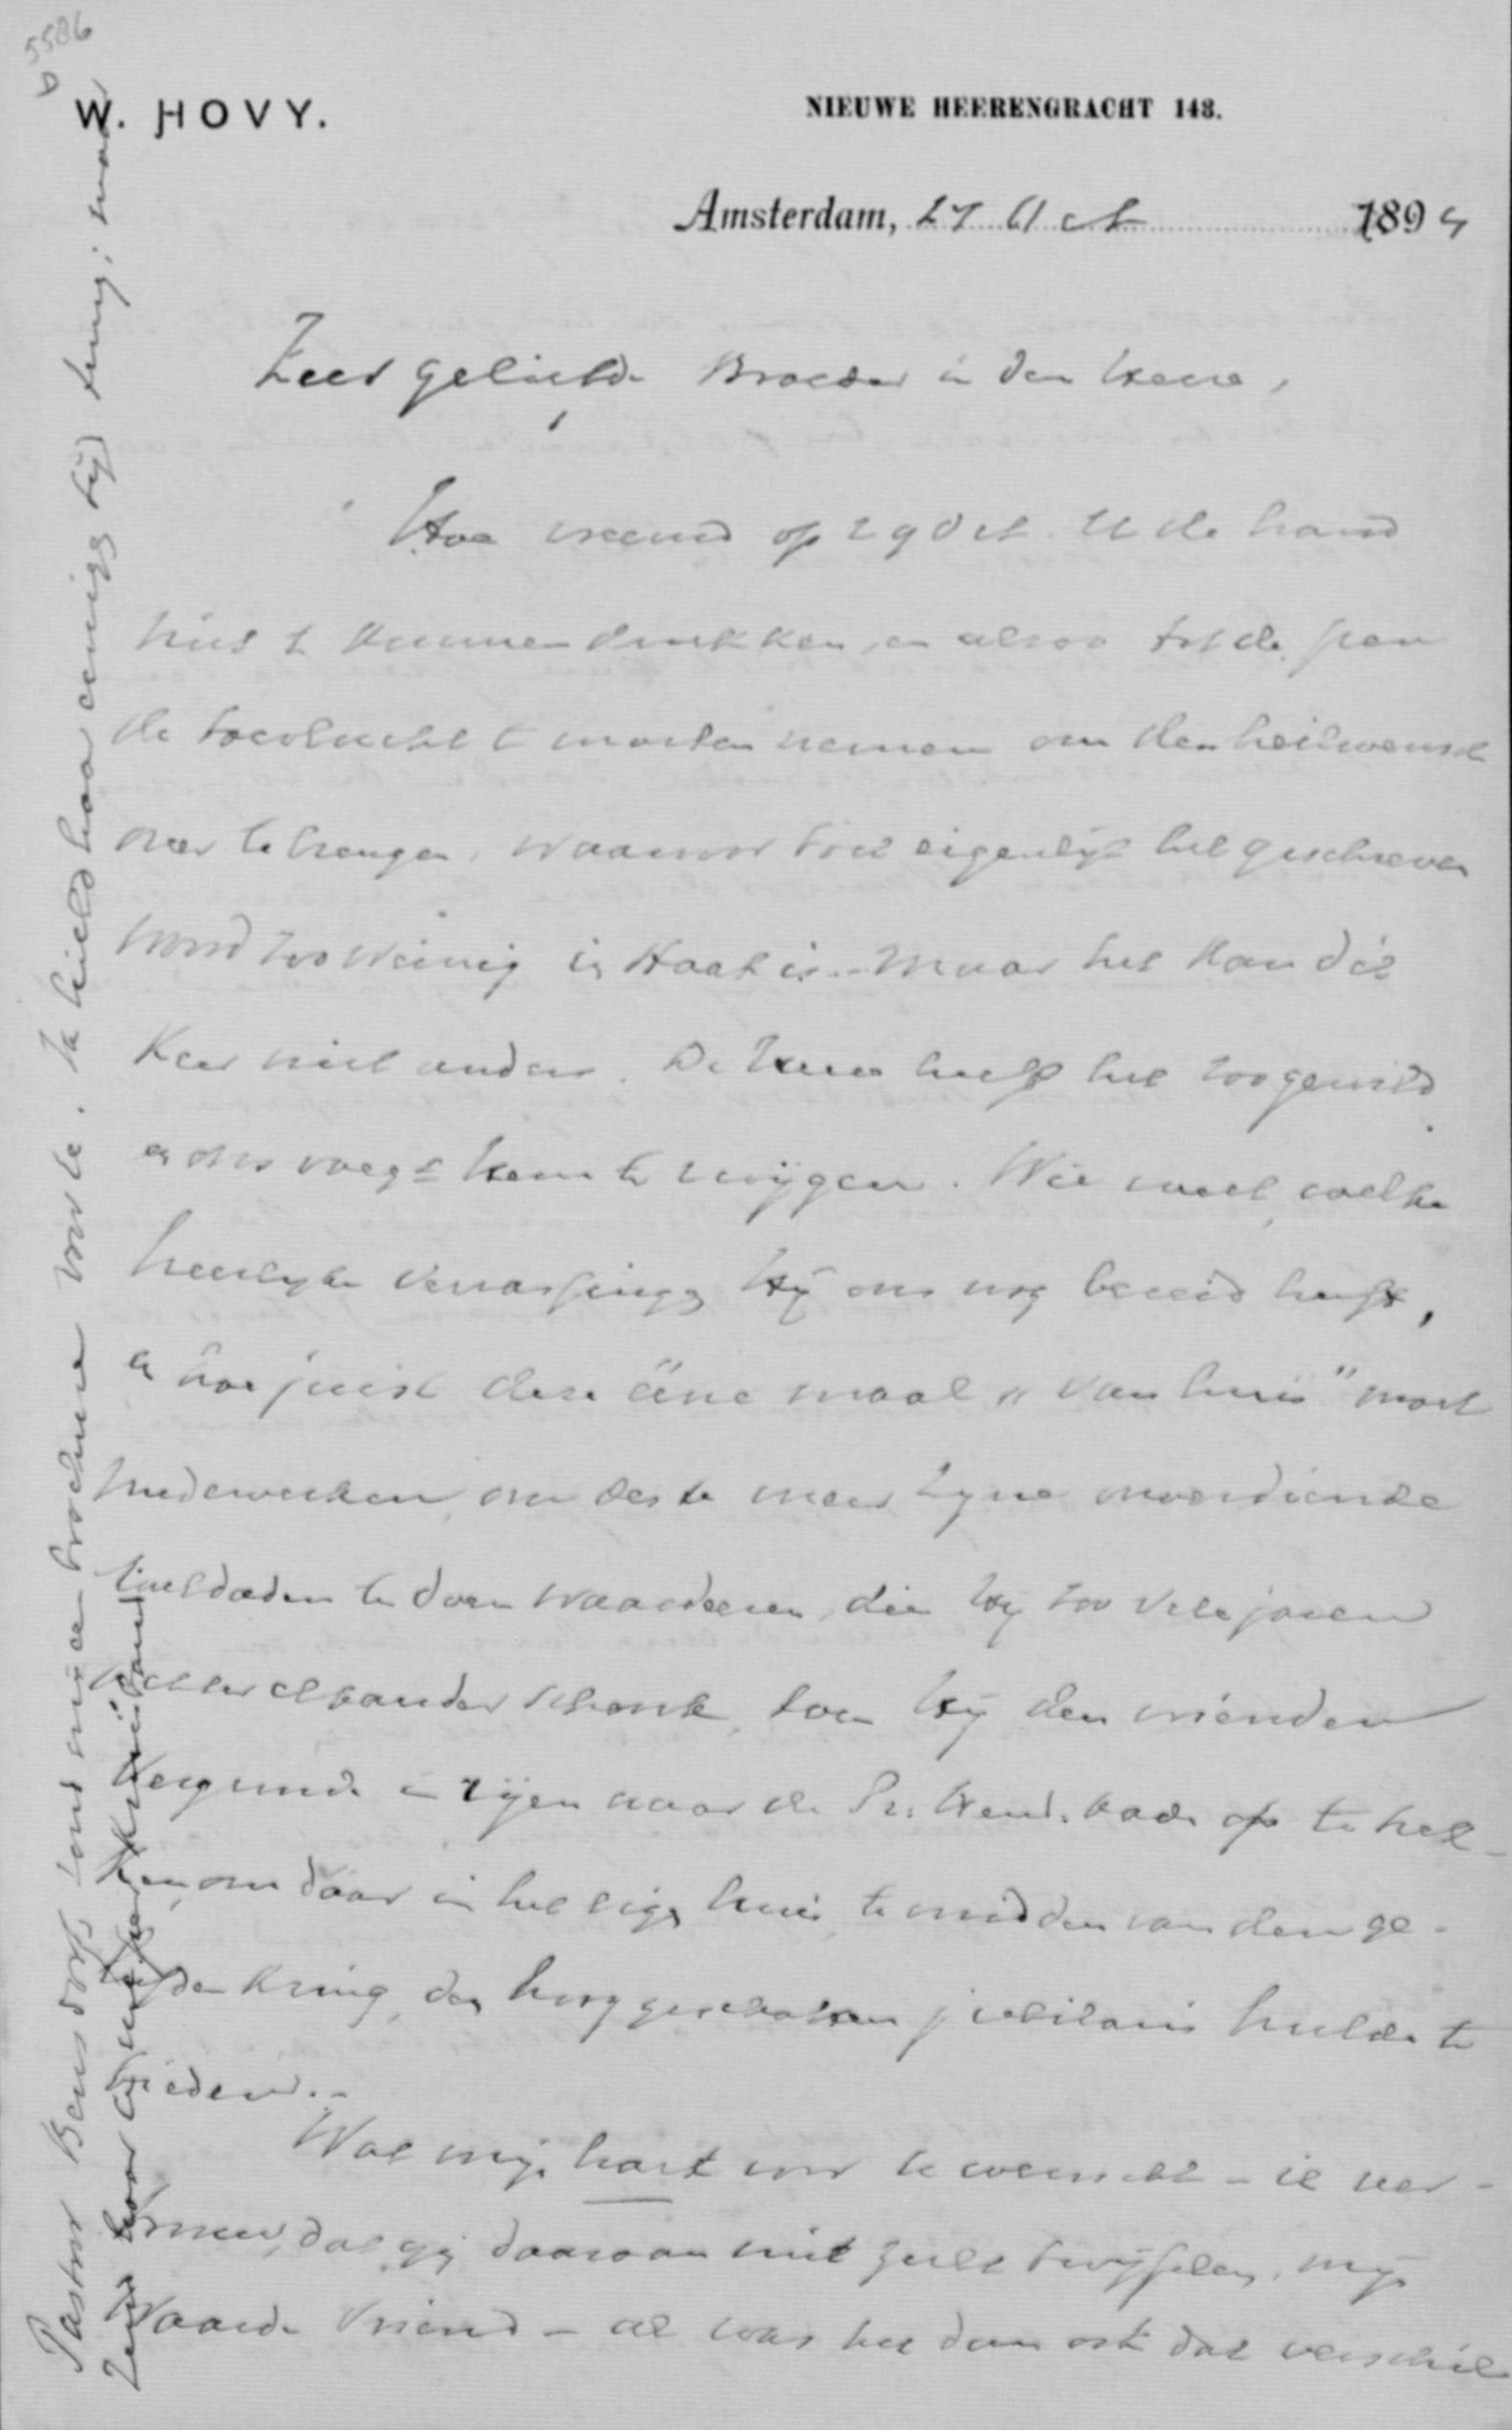 5586
W. HOVY.
NIEUWE HEERENGRACHT 148.
Amsterdam, 27 Oct 1894
Zeer geliefde Broeder in den Heere,
Hoe vreemd op 29 Oct. U de hand
niet te kunnen drukken, en alzoo tot de pen
de toevlucht te moeten nemen om den heilwensch
over te brengen, waarvoor toch eigenlijk het geschreven
woord zoo weinig in staat is. - Maar het kan dit
keer niet anders. De Heere heeft het zoo gewild
en ons voegt hem te zwijgen. Wie weet, welke
heerlijke verrassingen Hij ons nog bereid heeft,
en hoe juist deze ééne maal "van huis" moet
medewerken, om des te meer Zijne onverdiende
liefdaden te doen waardeeren, die Hij zoo vele jaren
achter elkander schonk, toen Hij den vrienden
vergunde in rijen naar de Pr. Hend. kade op te trek-
ken, om daar in het eigen huis, te midden van den ge-
liefden kring, den hooggeschatten jubilaris hulde te
bieden. -
Wat mijn hart voor U wenscht - ik ver-
trouw, dat gij daaraan niet zult twijfelen, mijn
waarde Vriend - al was het dan ook dat verschil
Pastor zond mij een brochure voor U. Ik hield haar eenigen tijd terug; maar
zend haar